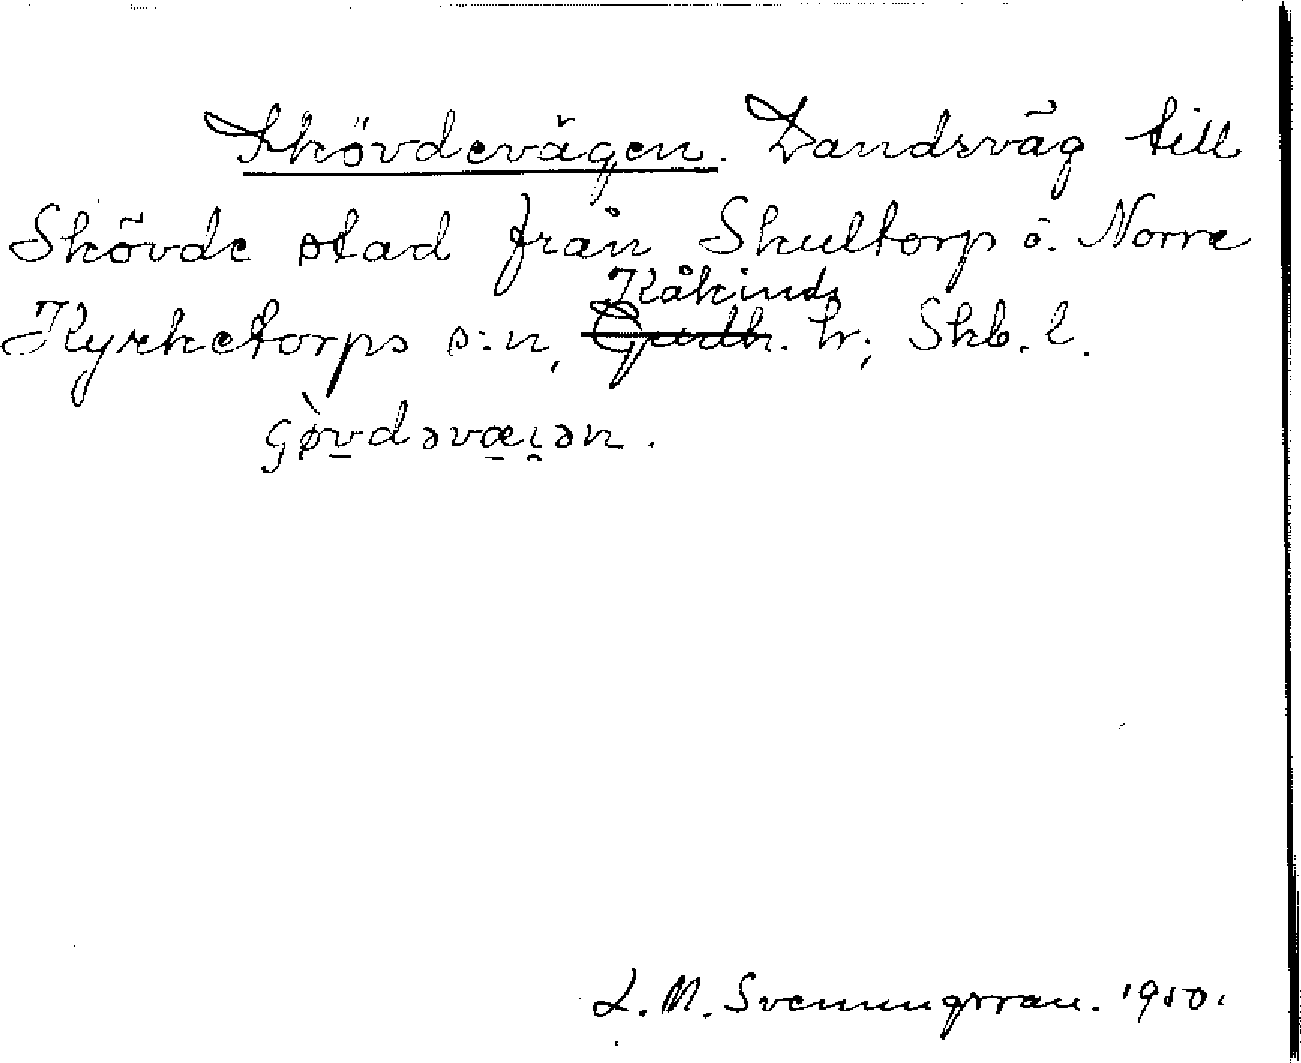 Skövdevägen. Landsväg till
Skövde stad från Skultorp ö. Norra
Kåkinds
Kyrketorps s:n, Gudh. hr; Skb. l.
gø̀vdəvæɪ̯ən.
L. M. Svenungsson. 1950.